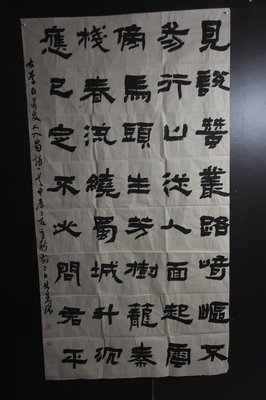 見說蠶叢路崎嶇不
易行山從人面起雲
傍馬頭生芳樹籠秦
棧春流繞蜀城升沉
應已定不必問君平
李白送友人入蜀詩一